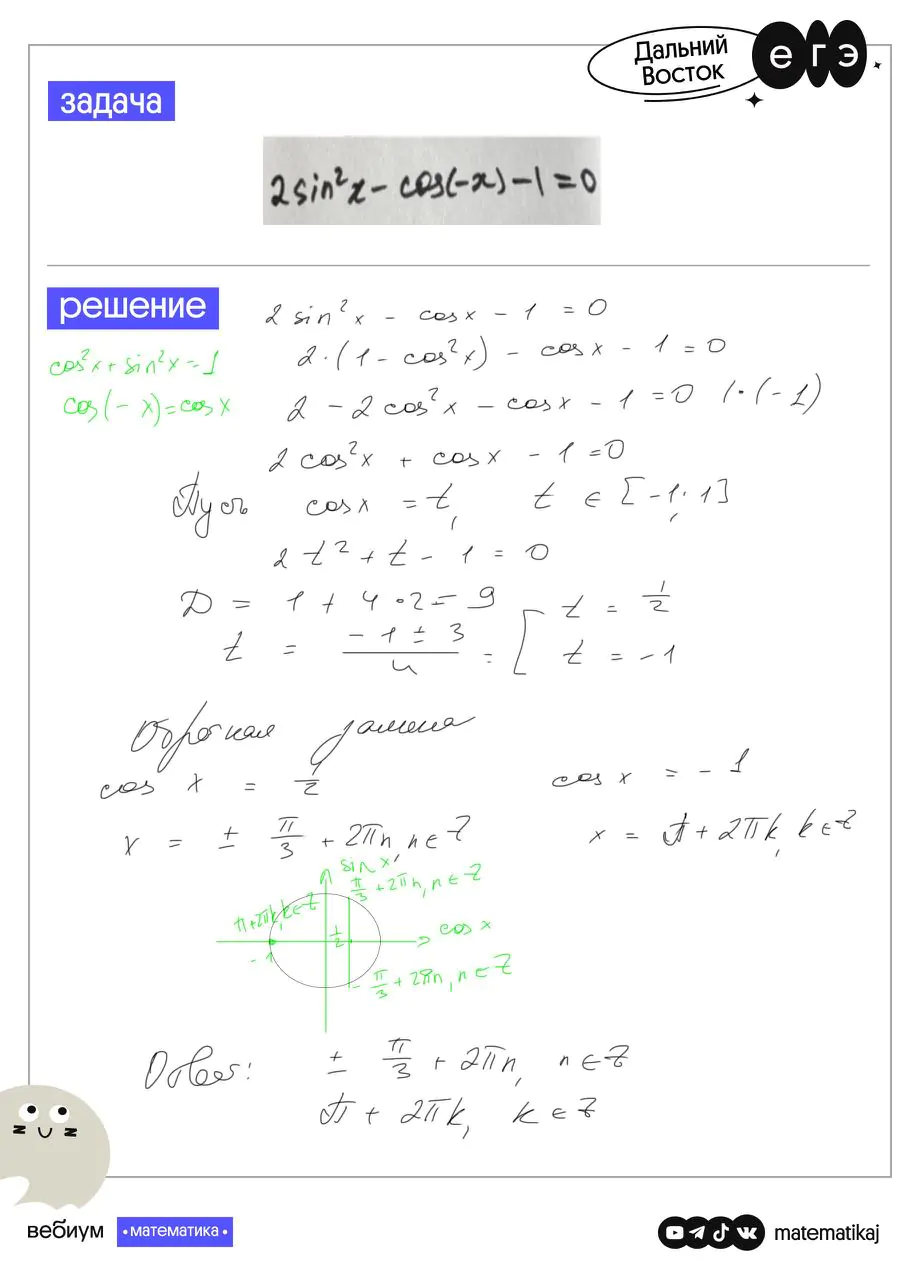 Дальний
Восток
егэ
задача
2sin²x - cos(-x) - 1 = 0
решение
2 sin²x - cosx - 1 = 0
cos²x + sin²x = 1
2·(1 - cos²x) - cosx - 1 = 0
cos(-x) = cosx
2 - 2cos²x - cosx - 1 = 0 |·(-1)
2cos²x + cosx - 1 = 0
Пусть cosx = t, t ∈ [-1; 1]
2t² + t - 1 = 0
D = 1 + 4·2 = 9
t = (-1 ± 3)/4 = [ t = 1/2
t = -1
Обратная замена
cos x = 1/2
cos x = -1
x = ± π/3 + 2πn, n ∈ Z
x = π + 2πk, k ∈ Z
sin x
π/3 + 2πn, n ∈ Z
π + 2πk, k ∈ Z
1/2
cos x
-1
-π/3 + 2πn, n ∈ Z
Ответ: ± π/3 + 2πn, n ∈ Z
π + 2πk, k ∈ Z
вебиум
•математика•
matematikaj